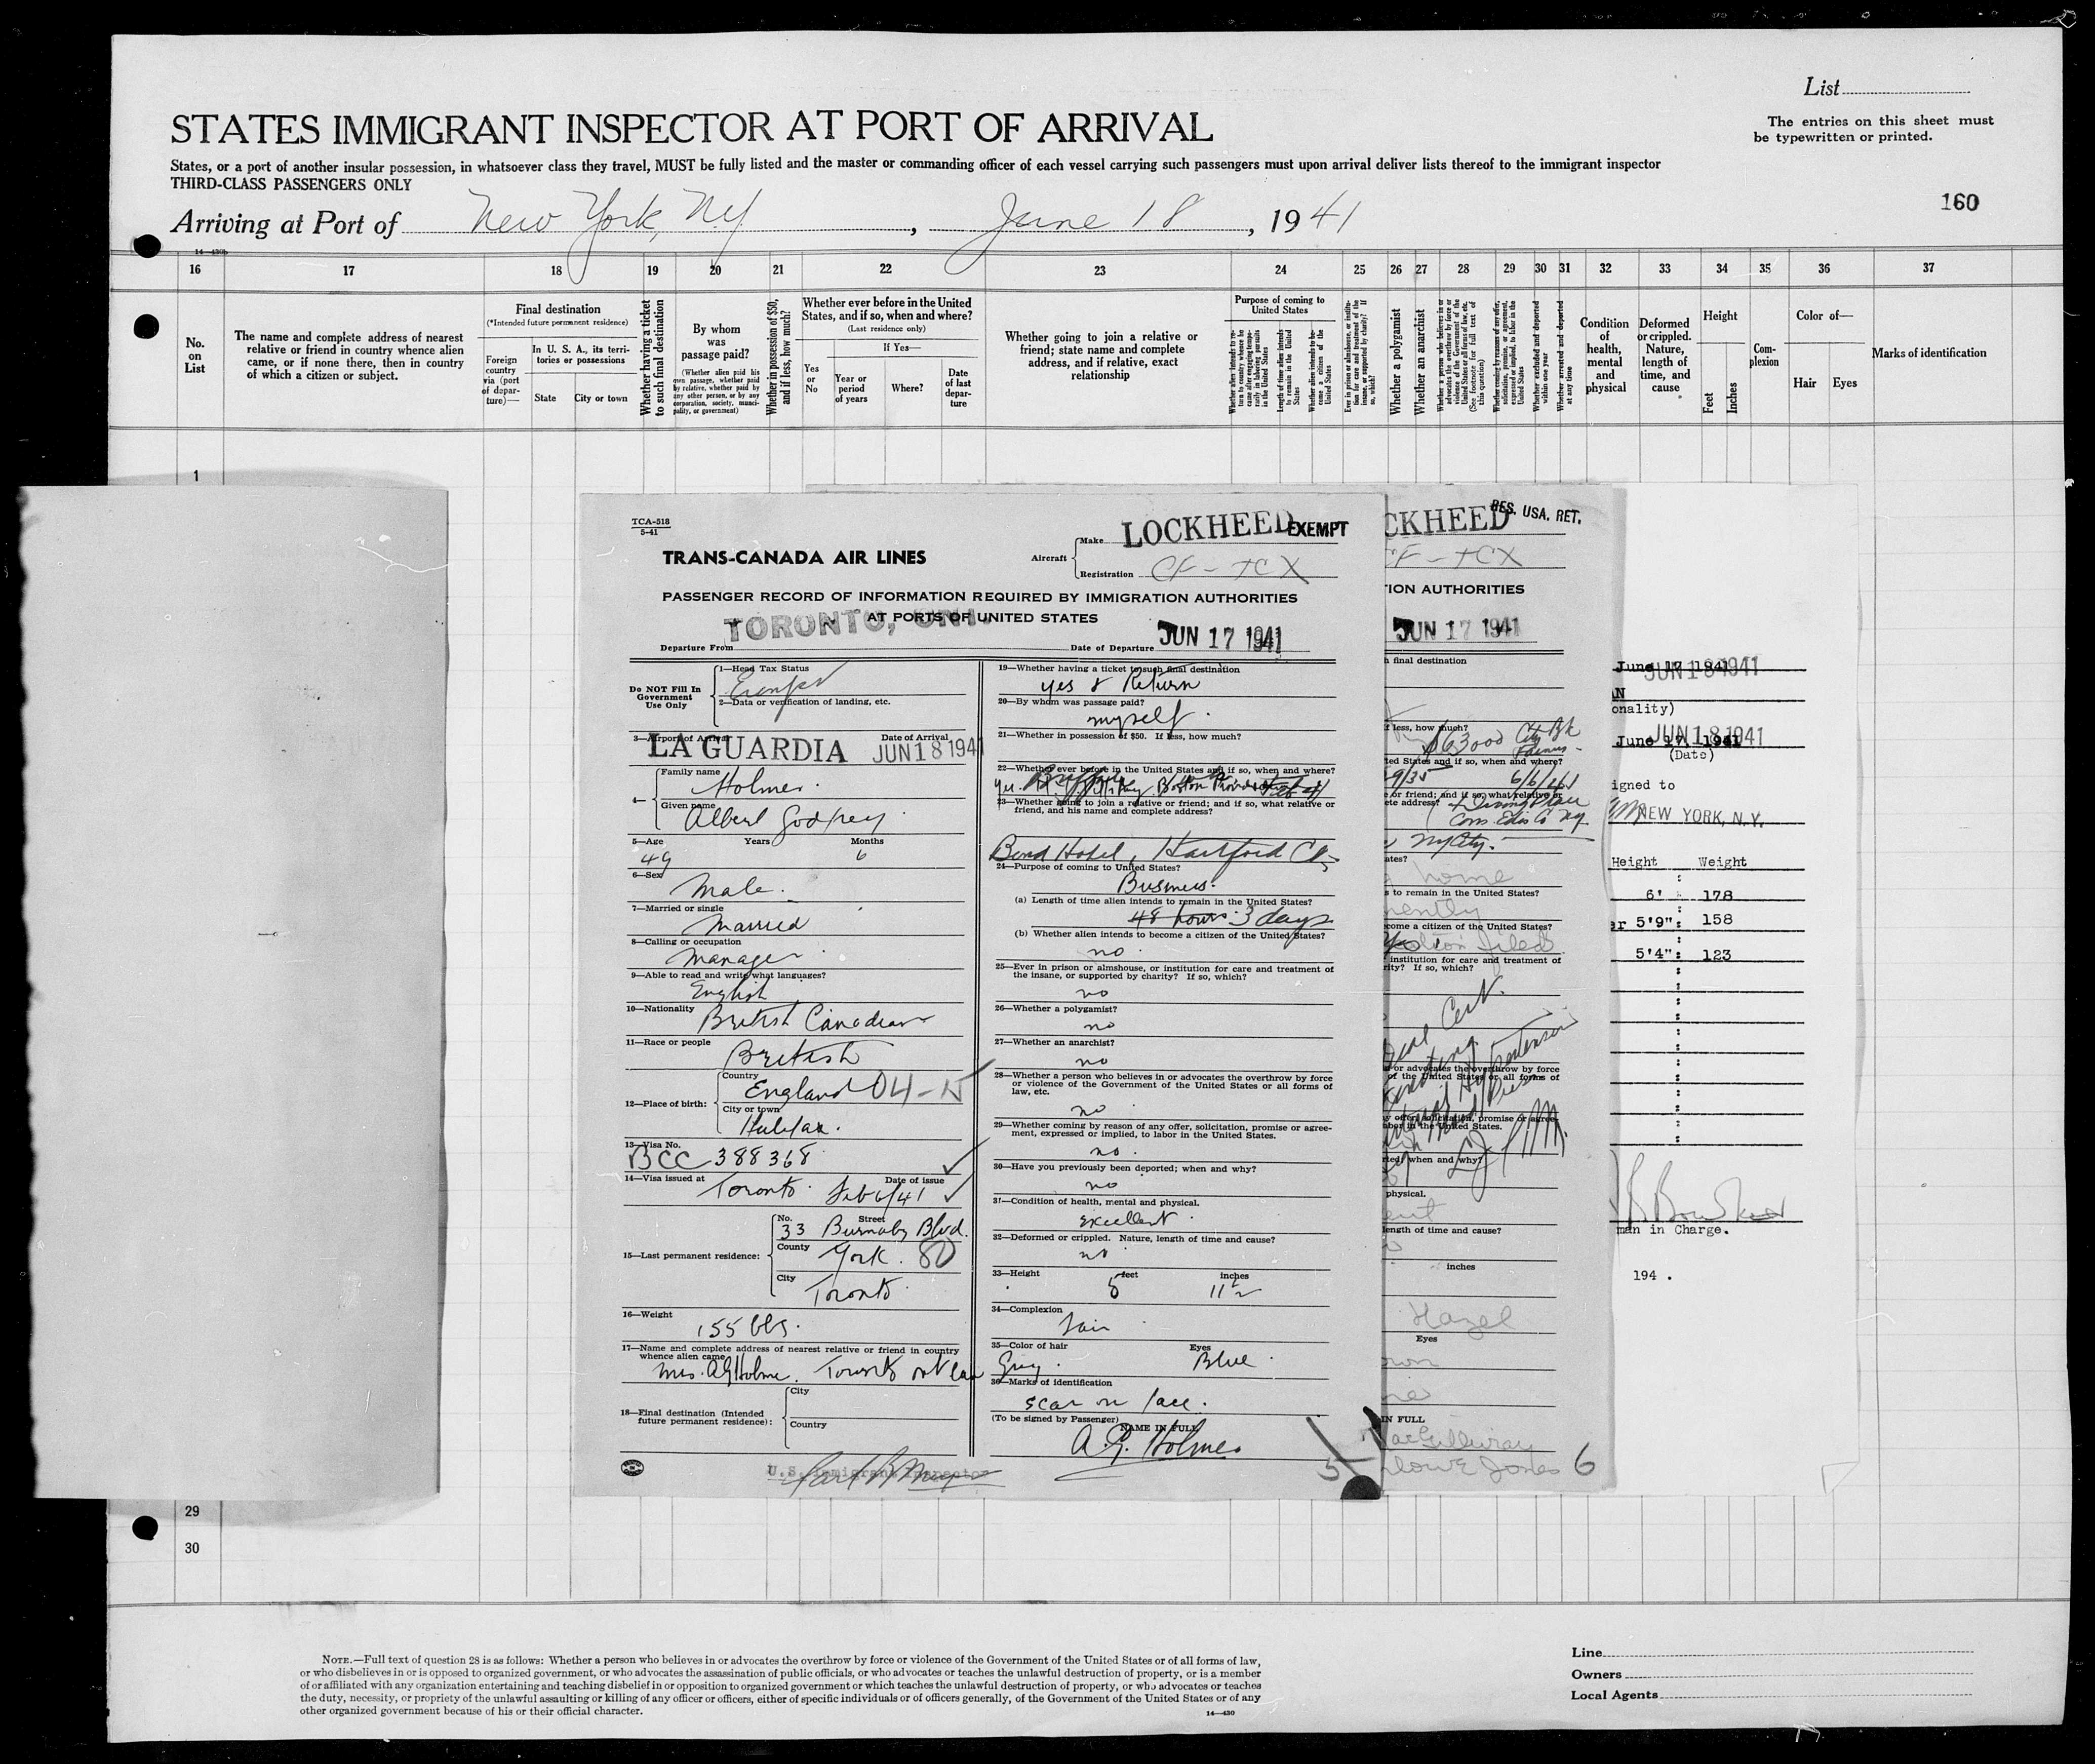 List
STATES IMMIGRANT INSPECTOR AT PORT OF ARRIVAL
The entries on this sheet must
be typewritten or printed.
States, or a port of another insular possession, in whatsoever class they travel, MUST be fully listed and the master or commanding officer of each vessel carrying such passengers must upon arrival deliver lists thereof to the immigrant inspector
THIRD-CLASS PASSENGERS ONLY
160
Arriving at Port of New York, N.Y. , June 18 , 19 41
16 17 18 19 20 21 22 23 24 25 26 27 28 29 30 31 32 33 34 35 36 37
No. on List
The name and complete address of nearest relative or friend in country whence alien came, or if none there, then in country of which a citizen or subject.
Final destination
(*Intended future permanent residence)
Foreign country via (port of departure)—
In U. S. A., its territories or possessions
State
City or town
Whether having a ticket to such final destination
By whom was passage paid?
(Whether alien paid his own passage, whether paid by relative, whether paid by any other person, or by any corporation, society, municipality, or government)
Whether in possession of $50, and if less, how much?
Whether ever before in the United States, and if so, when and where?
(Last residence only)
If Yes—
Yes or No
Year or period of years
Where?
Date of last departure
Whether going to join a relative or friend; state name and complete address, and if relative, exact relationship
Purpose of coming to United States
Length of time alien intends to remain in the United States
Whether alien intends to become a citizen of the United States
Whether a polygamist
Whether an anarchist
Condition of health, mental and physical
Deformed or crippled. Nature, length of time, and cause
Height
Feet
Inches
Complexion
Color of—
Hair
Eyes
Marks of identification
1
TCA-518
5-41
TRANS-CANADA AIR LINES
Aircraft
Make LOCKHEED EXEMPT
Registration CF-TCX
PASSENGER RECORD OF INFORMATION REQUIRED BY IMMIGRATION AUTHORITIES
AT PORTS OF UNITED STATES
Departure From TORONTO, ONT. Date of Departure JUN 17 1941
Do NOT Fill In
Government
Use Only
1—Head Tax Status
Exempt
2—Data or verification of landing, etc.
3—Airport of Arrival Date of Arrival
LA GUARDIA JUN 18 1941
4—
Family name
Holmes
Given name
Albert Godfrey
5—Age Years Months
49 6
6—Sex
Male.
7—Married or single
Married
8—Calling or occupation
Manager
9—Able to read and write what languages?
English
10—Nationality
British Canadian
11—Race or people
British
12—Place of birth:
Country
England 04-15
City or town
Halifax.
13—Visa No.
BCC 388368
14—Visa issued at Date of issue
Toronto. Feb 6/41
15—Last permanent residence:
No. Street
33 Burnaby Blvd.
County
York. 80
City
Toronto
16—Weight
155 lbs.
17—Name and complete address of nearest relative or friend in country
whence alien came
Mrs. A G Holmes. Toronto Ont Can
18—Final destination (Intended
future permanent residence):
City
Country
U.S. Immigrant Inspector
19—Whether having a ticket to such final destination
yes & Return
20—By whom was passage paid?
myself.
21—Whether in possession of $50. If less, how much?
22—Whether ever before in the United States and if so, when and where?
Boston
23—Whether going to join a relative or friend; and if so, what relative or
friend, and his name and complete address?
Bond Hotel, Hartford Ct,
24—Purpose of coming to United States?
Business.
(a) Length of time alien intends to remain in the United States?
48 hours 3 days
(b) Whether alien intends to become a citizen of the United States?
no.
25—Ever in prison or almshouse, or institution for care and treatment of
the insane, or supported by charity? If so, which?
no
26—Whether a polygamist?
no
27—Whether an anarchist?
no
28—Whether a person who believes in or advocates the overthrow by force
or violence of the Government of the United States or all forms of
law, etc.
no
29—Whether coming by reason of any offer, solicitation, promise or agree-
ment, expressed or implied, to labor in the United States.
no.
30—Have you previously been deported; when and why?
no
31—Condition of health, mental and physical.
excellent.
32—Deformed or crippled. Nature, length of time and cause?
no
33—Height feet inches
5 11½
34—Complexion
fair
35—Color of hair Eyes
Grey. Blue.
36—Marks of identification
scar on face.
(To be signed by Passenger)
NAME IN FULL
A. G. Holmes
5
CKHEED
RES. USA. RET.
CF-TCX
ION AUTHORITIES
JUN 17 1941
h final destination
f less, how much?
ted States and if so, when and where?
6/6/41
e or friend; and if so, what relative or
ete address?
ates?
home
s to remain in the United States?
come a citizen of the United States?
institution for care and treatment of
rity? If so, which?
or advocates the overthrow by force
of the United States or all forms of
ted; when and why?
physical.
length of time and cause?
inches
Hazel
Eyes
IN FULL
Jones 6
June 17 1941
JUN 18 1941
onality)
June 17, 1941
JUN 18 1941
(Date)
igned to
NEW YORK, N.Y.
Height Weight
6' 178
er 5'9" : 158
5'4" : 123
man in Charge.
194 .
29
30
NOTE.—Full text of question 28 is as follows: Whether a person who believes in or advocates the overthrow by force or violence of the Government of the United States or of all forms of law,
or who disbelieves in or is opposed to organized government, or who advocates the assassination of public officials, or who advocates or teaches the unlawful destruction of property, or is a member
of or affiliated with any organization entertaining and teaching disbelief in or opposition to organized government or which teaches the unlawful destruction of property, or who advocates or teaches
the duty, necessity, or propriety of the unlawful assaulting or killing of any officer or officers, either of specific individuals or of officers generally, of the Government of the United States or of any
other organized government because of his or their official character.
14—430
Line
Owners
Local Agents